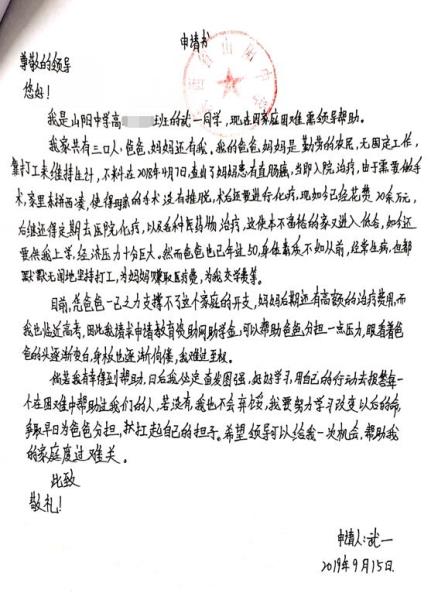 申请书
尊敬的领导
您好!
我是山阳中学高 班的武一同学,现在因家庭困难需领导帮助。
我家共有三口人:爸爸、妈妈还有我。我的爸爸、妈妈是勤劳的农民,无固定工作,
靠打工来维持生计,不料在2018年4月7日,查出了妈妈患有直肠癌,当即入院治疗,由于需要做手
术,家里东拼西凑,使得母亲的手术没有推脱,术后还要进行化疗,现如今已经花费20余万元,
后继还得定期去医院化疗,以及各种医药物治疗,这使本不富裕的家又进入低谷,如今还
要供我上学,经济压力十分巨大。然而爸爸也已年过50,身体素质不如从前,经常生病,但都
默默无闻地坚持打工,为妈妈赚取医疗费,为我交学费等。
目前,凭爸爸一己之力支撑不了这个家庭的开支,妈妈后期还有高额的治疗费用,而
我也临近高考,因此我请求申请教育资助网助学金,可以帮助爸爸分担一点压力,眼看着爸
爸的头逐渐变白,身板也逐渐佝偻,我难过至极。
倘若我有幸得到帮助,日后我必定奋发图强,好好学习,用自己的行动去报答每一
个在困难中帮助过我们的人,若没有,我也不会弃馁,我要努力学习改变以后的命,
争取早日为爸爸分担,扛起自己的担子。希望领导可以给我一次机会,帮助我
的家庭度过难关。
此致
敬礼!
申请人:武一
2019年9月15日.